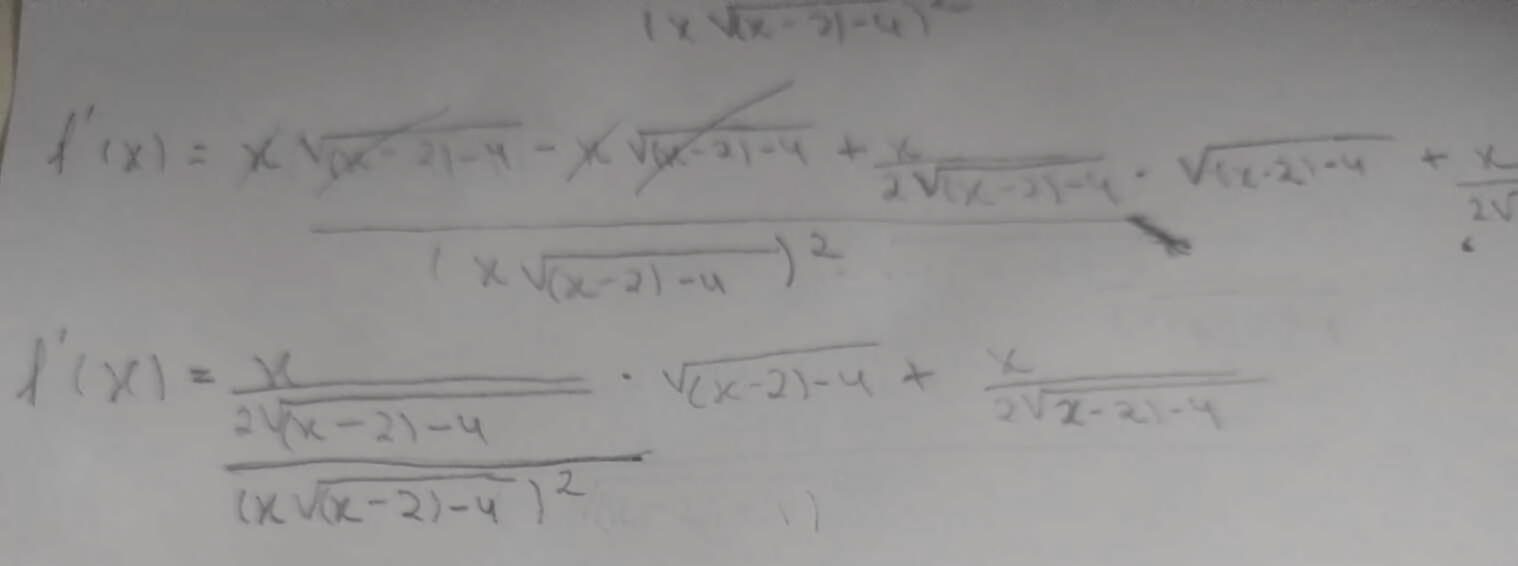 (x √(x-2)-4)²
f'(x) = x √(x-2)-4 - x √(x-2)-4 + x/2√(x-2)-4 · √(x-2)-4 + x/2√
(x √(x-2)-4)²
f'(x) = x/2√(x-2)-4 · √(x-2)-4 + x/2√x-2)-4
(x √(x-2)-4)²